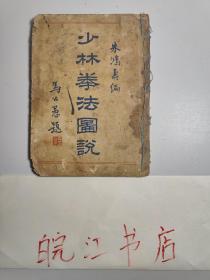 朱鴻壽編
少林拳法圖說
馬公愚題
皖江书店